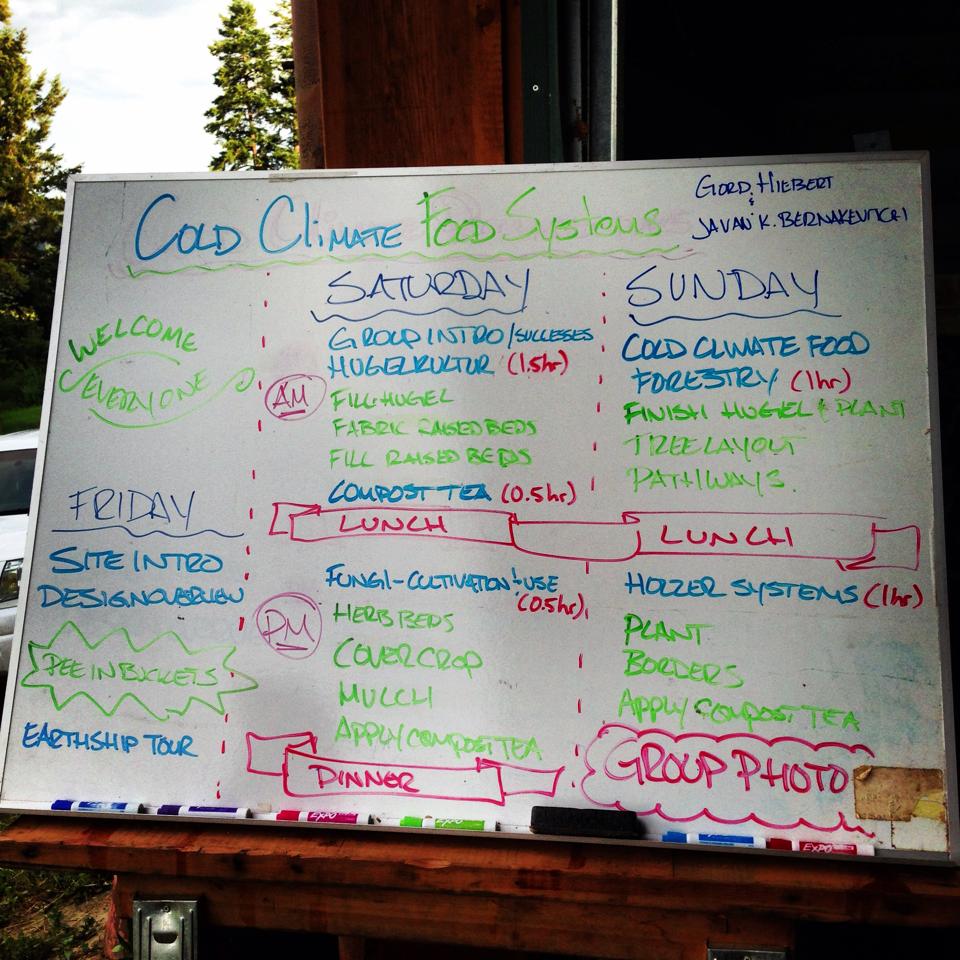 COLD CLIMATE FOOD SYSTEMS
GORD. HIEBERT
&
JAVAN K. BERNAKEVITCH
WELCOME
EVERYONE
FRIDAY
SITE INTRO
DESIGN OVERVIEW
PEE IN BUCKETS
EARTHSHIP TOUR
SATURDAY
AM
GROUP INTRO/SUCCESES
HUGELKULTUR (1.5hr)
FILL HUGEL
FABRIC RAISED BEDS
FILL RAISED BEDS
COMPOST TEA (0.5hr)
LUNCH
PM
FUNGI-CULTIVATION & USE
(0.5hr)
HERB BEDS
COVER CROP
MULCH
APPLY COMPOST TEA
DINNER
SUNDAY
COLD CLIMATE FOOD
FORESTRY (1hr)
FINISH HUGEL & PLANT
TREE LAYOUT
PATHWAYS.
LUNCH
HOLZER SYSTEMS (1hr)
PLANT
BORDERS
APPLY COMPOST TEA
GROUP PHOTO
EXPO
EXPO
EXPO